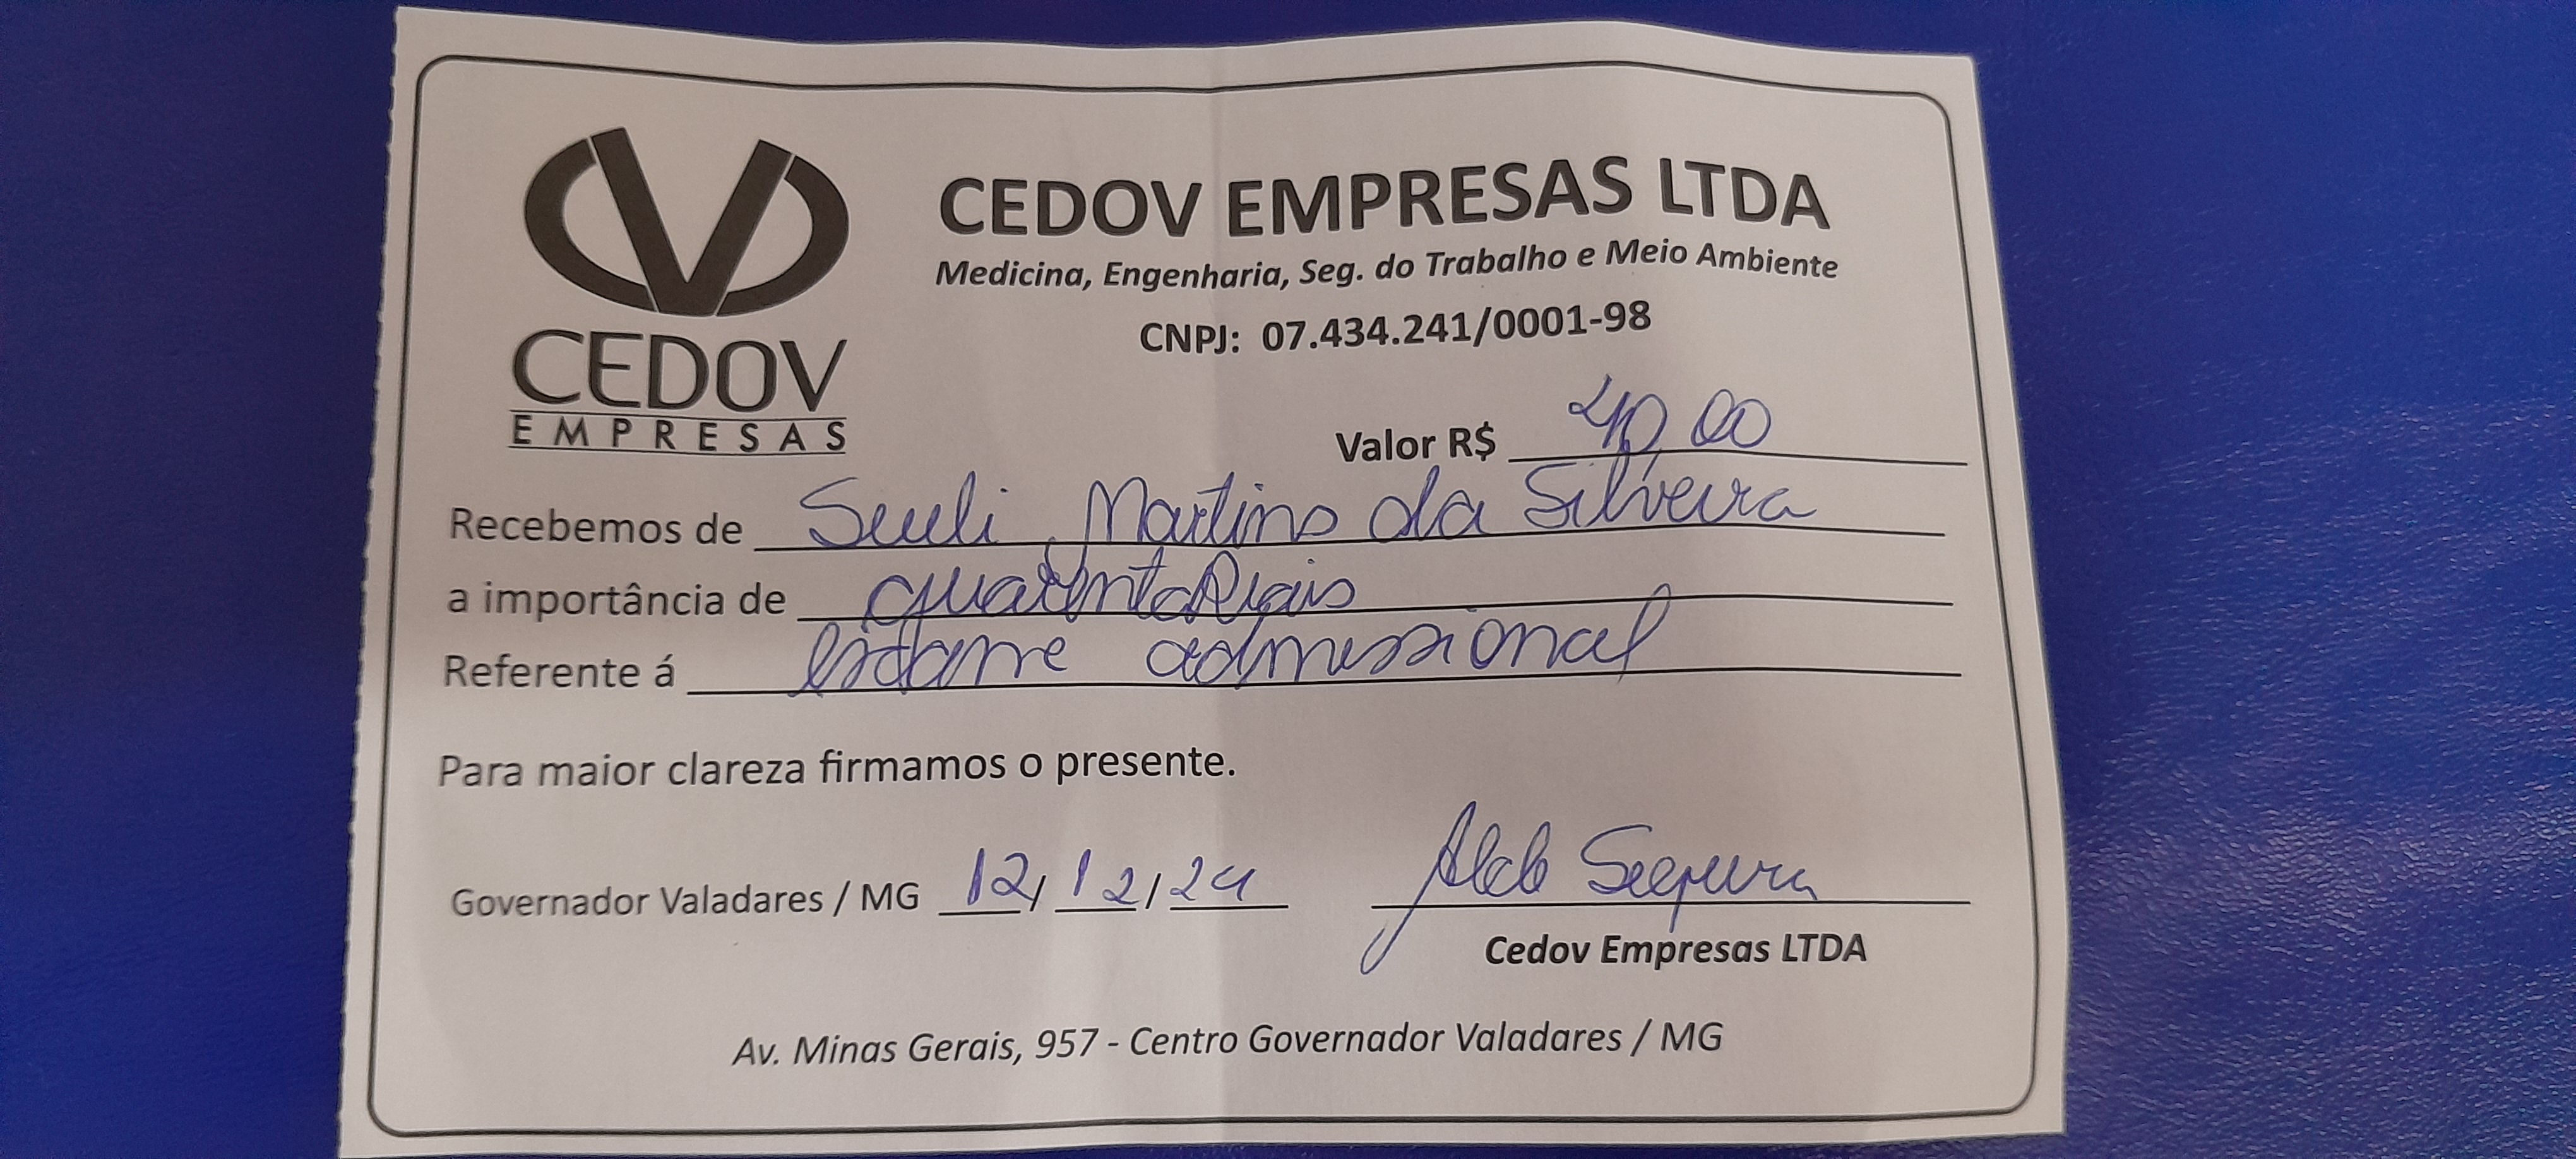 CEDOV
EMPRESAS
CEDOV EMPRESAS LTDA
Medicina, Engenharia, Seg. do Trabalho e Meio Ambiente
CNPJ: 07.434.241/0001-98
Valor R$ 40,00
Recebemos de Sueli Martins da Silveira
a importância de quarenta Reais
Referente á admissional
Para maior clareza firmamos o presente.
Governador Valadares / MG 12/12/24
Cedov Empresas LTDA
Av. Minas Gerais, 957 - Centro Governador Valadares / MG